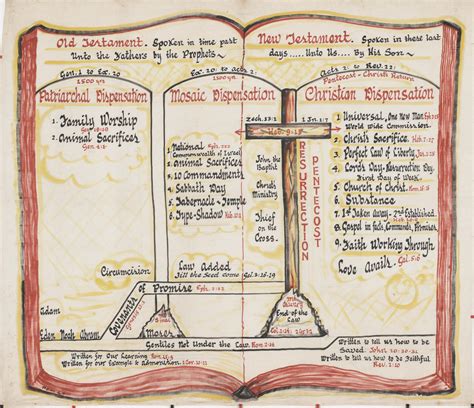 Old Testament. Spoken in time past
Unto the Fathers by the Prophets
New Testament. Spoken in these last
days.....Unto Us.... By His Son
Gen. 1 to Ex. 20
2500 yrs.
Ex. 20 to Acts 2
1500 yrs.
Acts 2 to Rev. 22
Pentecost - Christs Return
Patriarchal Dispensation
1. Family Worship
2. Animal Sacrifices
Gen. 4:4
Mosaic Dispensation
1. National
Commonwealth of Israel
2. Animal Sacrifices
3. 10 Commandments
4. Sabbath Day
5. Tabernacle - Temple
6. Type-Shadow
Zech. 13:1
1 Jn. 1:7
Heb. 9:15
John the
Baptist
Christs
Ministry
Thief
on the
Cross
RESURRECTION
PENTECOST
Christian Dispensation
1. Universal, One new Man
World Wide Commission.
2. Christs Sacrifice
3. Perfect Law of Liberty
4. Lords Day - Resurrection Day
First Day of Week
5. Church of Christ
6. Substance
7. 1st Taken away - 2nd Established
8. Gospel in facts, Commands, Promises
9. Faith Working Through
Love Avails. Gal. 5:6
Circumcision
Law Added
Till the Seed come Gal. 3:16-19
Covenants of Promise Eph. 2:12
Adam
Eden Noah Abram
Sinai
Moses
End of the
Law
Gentiles Not Under the Law. Rom. 2:14
Written for Our Learning Rom. 15:4
Written for our Example & Admonition
Written to tell us how to be
Saved. John 20:30-31
Written to tell us how to be Faithful
Rev. 2:10